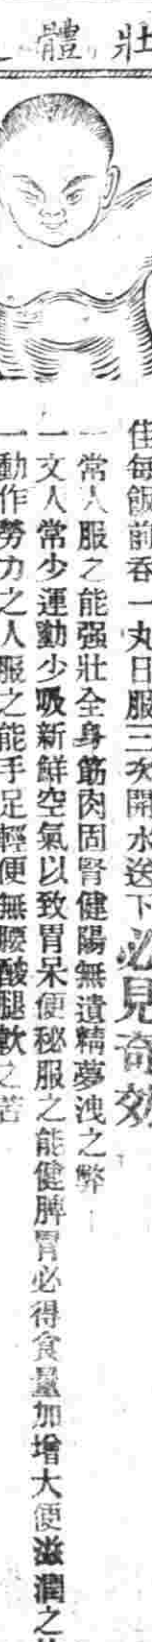 壯體
佳每飯前吞一丸日服三次開水送下必見奇效
一常人服之能强壯全身筋肉固腎健陽無遺精夢洩之弊
一文人常少運動少吸新鮮空氣以致胃呆便秘服之能健脾胃必得食量加增大便滋潤之
一動作勞力之人服之能手足輕便無腰酸腿軟之苦